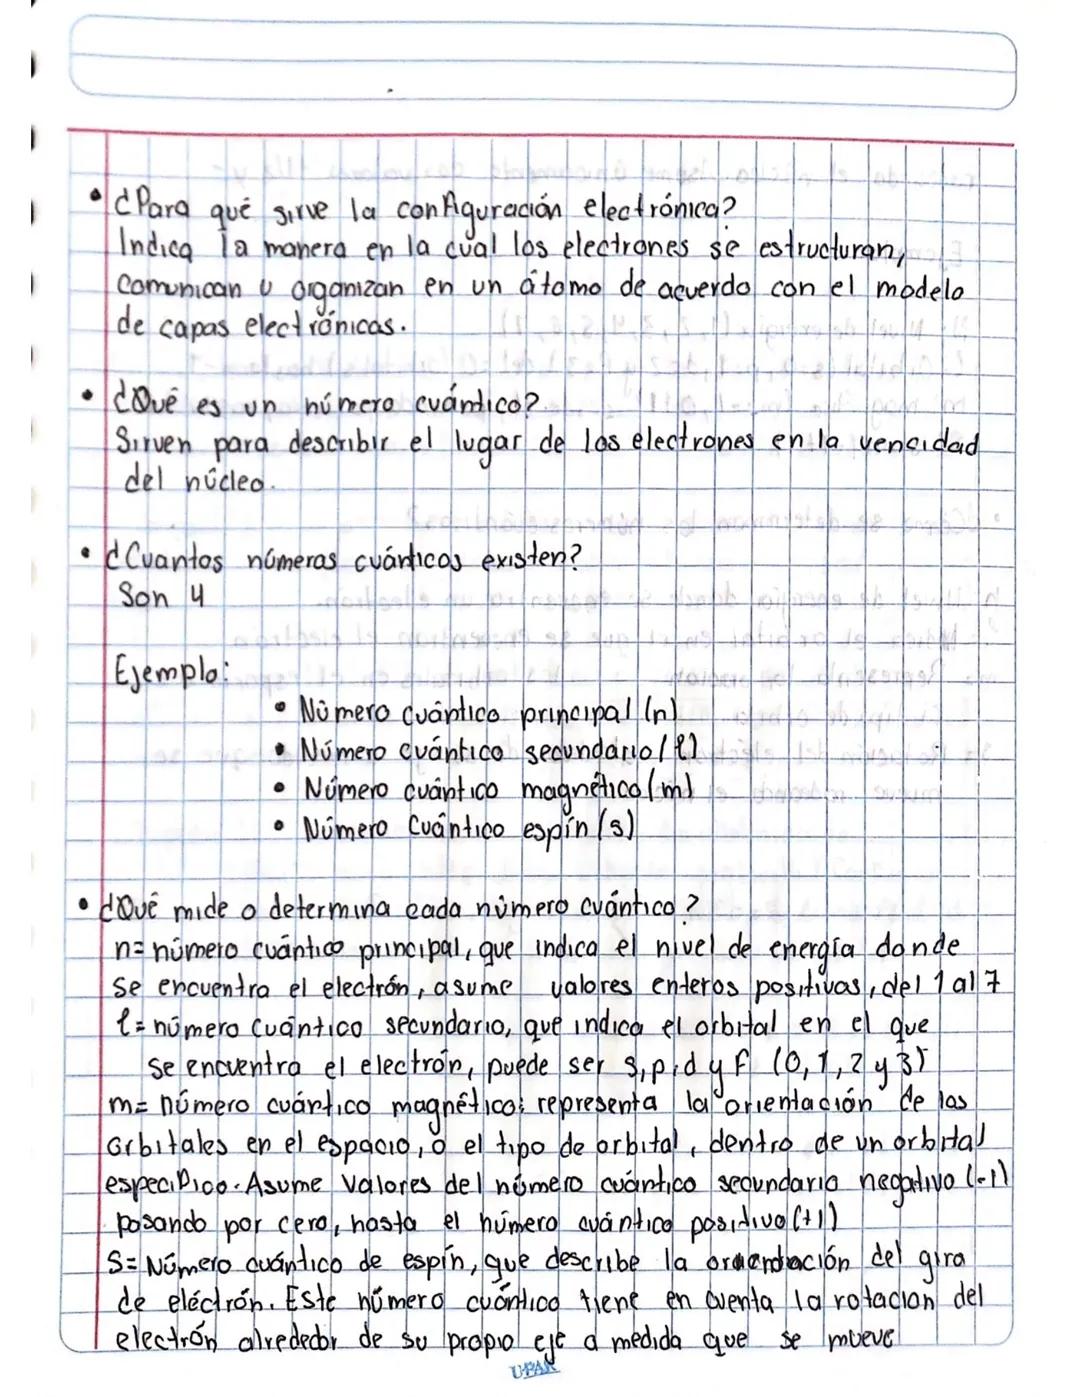 • ¿Para qué sirve la configuración electrónica?
Indica la manera en la cual los electrones se estructuran,
comunican u organizan en un átomo de acuerdo con el modelo
de capas electrónicas.
• ¿Qué es un número cuántico?
Sirven para describir el lugar de los electrones en la vencidad
del núcleo.
• ¿Cuantos números cuánticos existen?
Son 4
Ejemplo:
• Número cuántico principal (n)
• Número cuántico secundario (l)
• Número cuántico magnético (m)
• Número Cuántico espín (s)
• ¿Qué mide o determina cada número cuántico?
n= número cuántico principal, que indica el nivel de energía donde
se encuentra el electrón, asume valores enteros positivos, del 1 al 7
l= número cuántico secundario, que indica el orbital en el que
se encuentra el electrón, puede ser s, p, d y f (0, 1, 2 y 3)
m= número cuántico magnético; representa la orientación de los
orbitales en el espacio, o el tipo de orbital, dentro de un orbital
especifico. Asume Valores del número cuántico secundario negativo (-l)
pasando por cero, hasta el número cuántico positivo (+l)
S= Número cuántico de espín, que describe la del giro
de eléctrón. Este número cuántico tiene en cuenta la rotacion del
electrón alrededor de su propio eje a medida que se mueve
UPAR